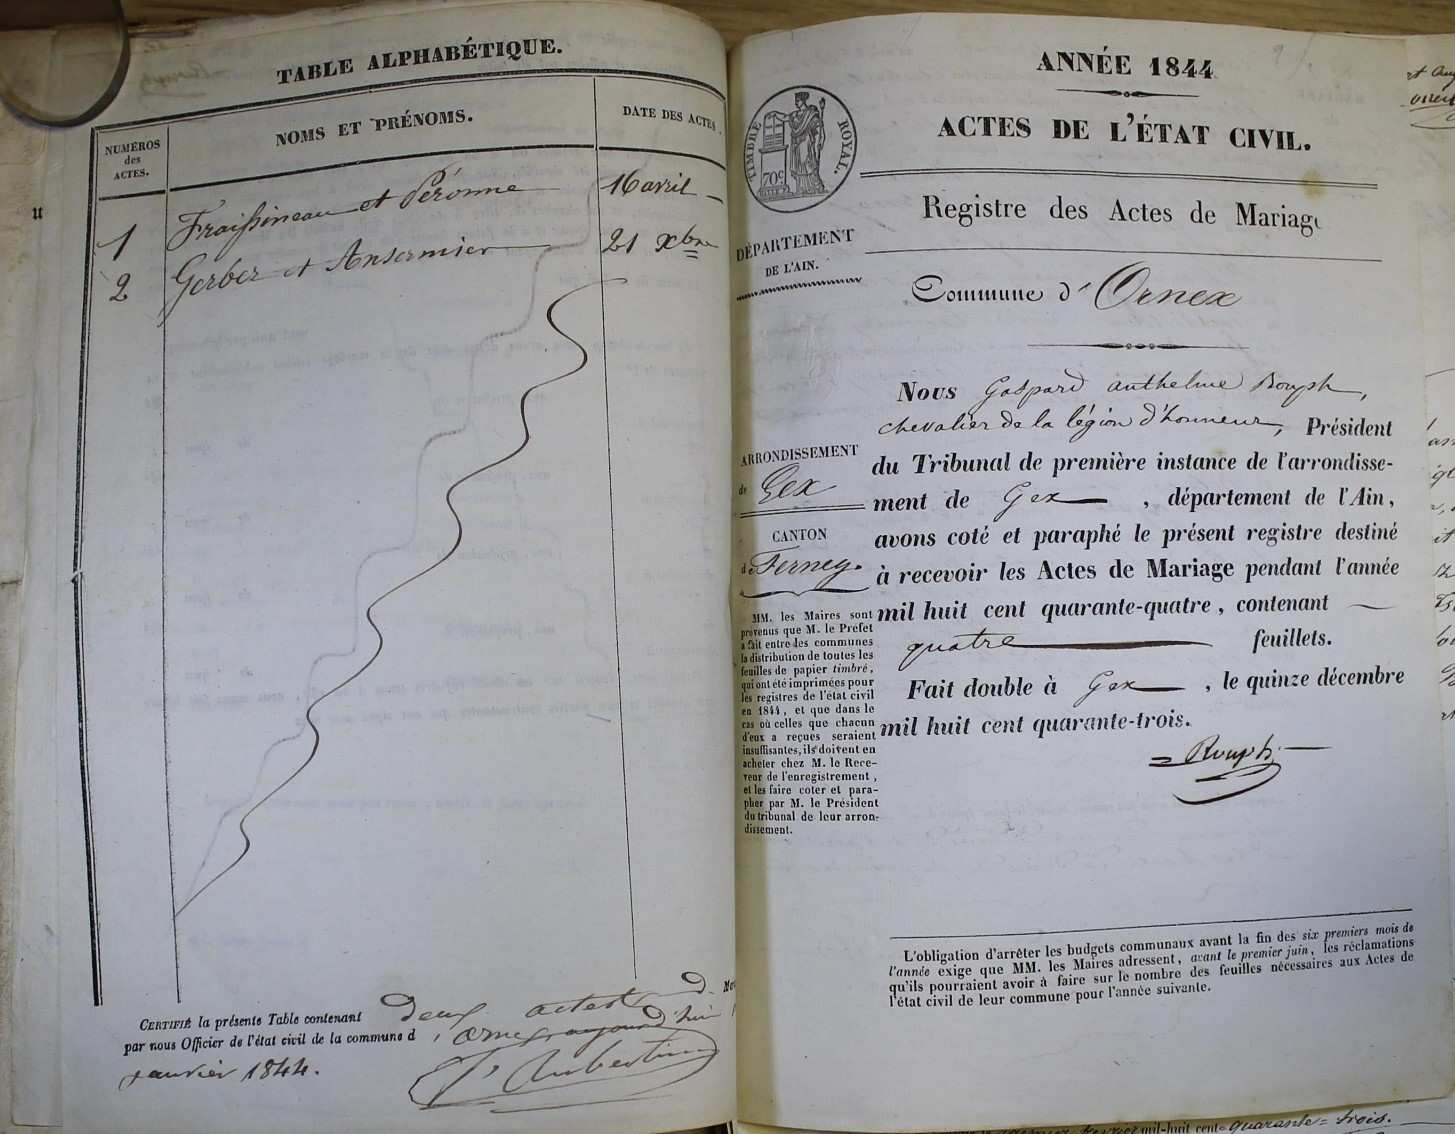 TABLE ALPHABÉTIQUE.
NUMÉROS
des
ACTES.
NOMS ET PRÉNOMS.
DATE DES ACTES
1 Fraissineau et Péronne 16 avril
2 Gerber et Ansermier 21 Xbre
CERTIFIÉ la présente Table contenant deux actes
par nous Officier de l'état civil de la commune d'Ornex aujourd'hui
janvier 1844.
Aubertin
ANNÉE 1844
ACTES DE L'ÉTAT CIVIL.
Registre des Actes de Mariage
Commune d'Ornex
TIMBRE ROYAL.
70c
DÉPARTEMENT
DE L'AIN.
ARRONDISSEMENT
de Gex
CANTON
de Ferney.
MM. les Maires sont
prévenus que M. le Préfet
a fait entre les communes
la distribution de toutes les
feuilles de papier timbré,
qui ont été imprimées pour
les registres de l'état civil
en 1844, et que dans le
cas où celles que chacun
d'eux a reçues seraient
insuffisantes, ils doivent en
acheter chez M. le Rece-
veur de l'enregistrement,
et les faire coter et para-
pher par M. le Président
du tribunal de leur arron-
dissement.
Nous Gaspard anthelme Rouph,
chevalier de la légion d'honneur, Président
du Tribunal de première instance de l'arrondisse-
ment de Gex, département de l'Ain,
avons coté et paraphé le présent registre destiné
à recevoir les Actes de Mariage pendant l'année
mil huit cent quarante-quatre, contenant
quatre feuillets.
Fait double à Gex, le quinze décembre
mil huit cent quarante-trois.
Rouph
L'obligation d'arrêter les budgets communaux avant la fin des six premiers mois de
l'année exige que MM. les Maires adressent, avant le premier juin, les réclamations
qu'ils pourraient avoir à faire sur le nombre des feuilles nécessaires aux Actes de
l'état civil de leur commune pour l'année suivante.
mil-huit cent quarante-trois.